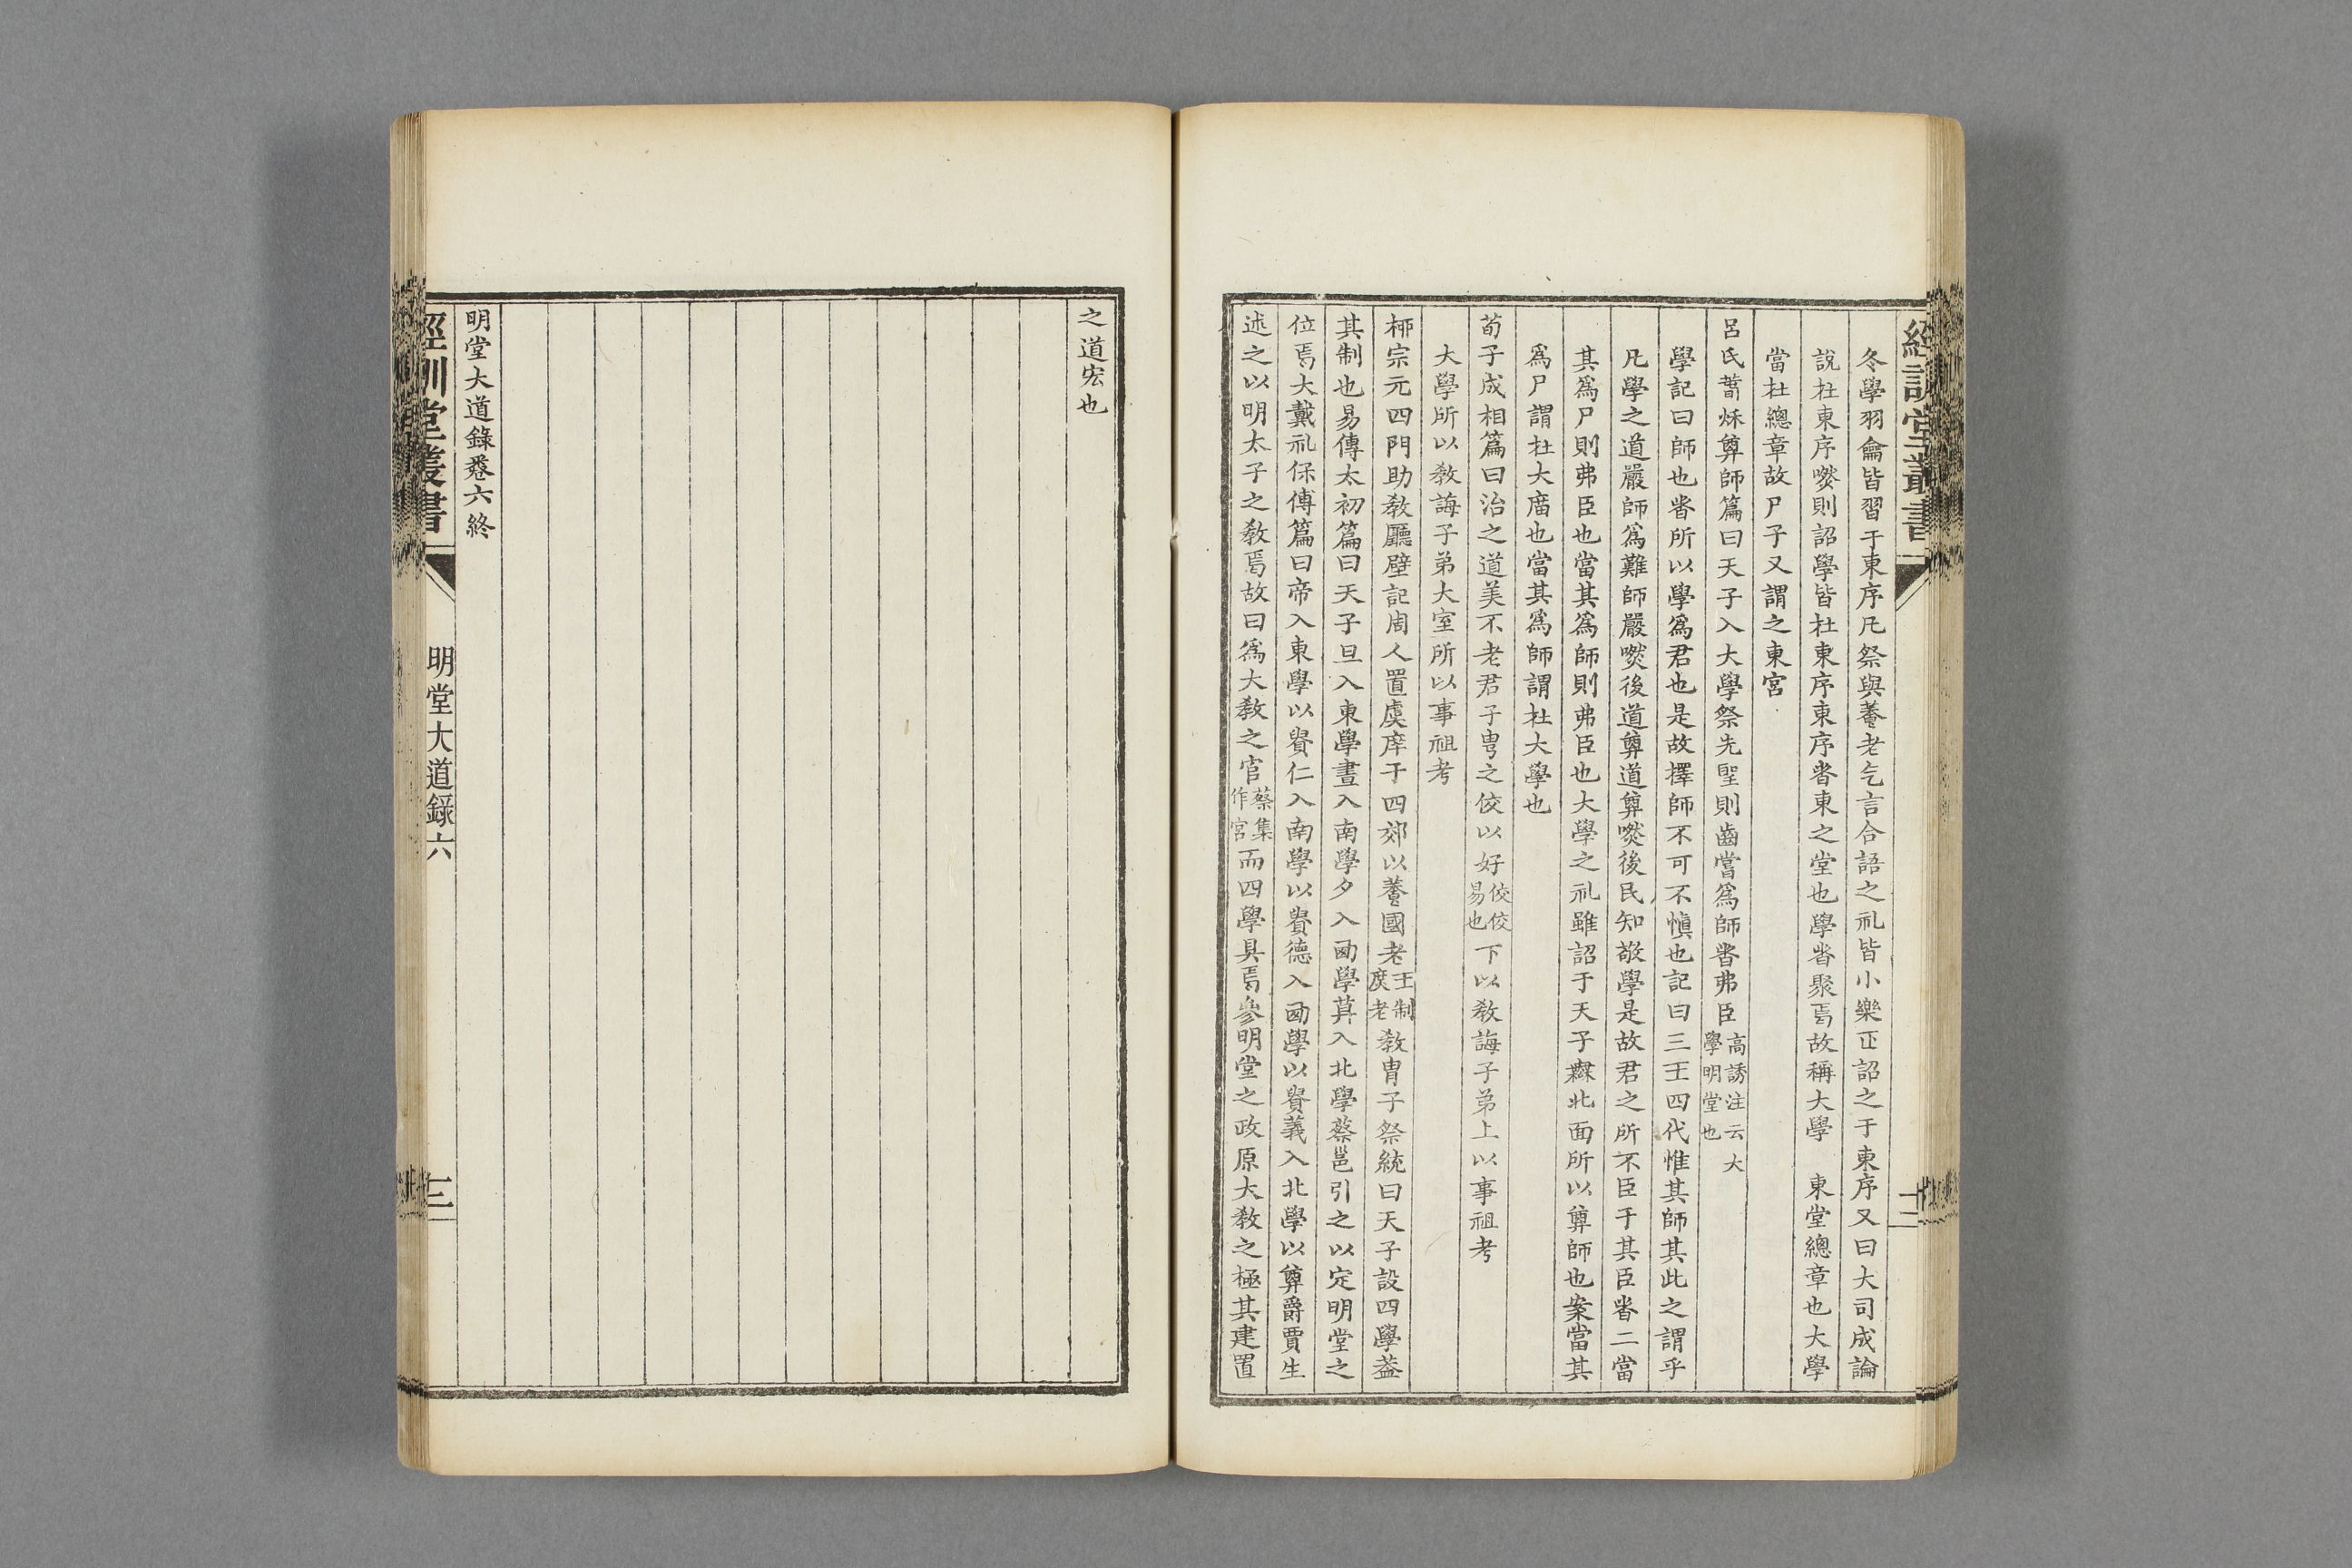 經訓堂叢書
冬學羽龠皆習于東序凡祭與養老乞言合語之礼皆小樂正詔之于東序又曰大司成論
說杜東序㷼則詔學皆杜東序東序者東之堂也學者聚焉故稱大學　東堂總章也大學
當杜總章故尸子又謂之東宮
呂氏萅秌尊師篇曰天子入大學祭先聖則齒嘗爲師者弗臣高誘注云大學明堂也
學記曰師也者所以學爲君也是故擇師不可不愼也記曰三王四代惟其師其此之謂乎
凡學之道嚴師爲難師嚴㷼後道尊道尊㷼後民知敬學是故君之所不臣于其臣者二當
其爲尸則弗臣也當其爲師則弗臣也大學之礼雖詔于天子橆北面所以尊師也案當其
爲尸謂杜大廟也當其爲師謂杜大學也
荀子成相篇曰治之道美不老君子甹之佼以好佼佼易也下以敎誨子弟上以事祖考
大學所以敎誨子弟大室所以事祖考
桺宗元四門助敎廳壁記周人置虞庠于四郊以養國老王制庶老敎冑子祭統曰天子設四學葢
其制也易傳太初篇曰天子旦入東學晝入南學夕入㢴學萛入北學蔡邕引之以定明堂之
位焉大戴礼保傅篇曰帝入東學以貴仁入南學以貴德入㢴學以貴義入北學以尊爵賈生
述之以明太子之敎焉故曰爲大敎之官蔡集作宮而四學具焉參明堂之政原大敎之極其建置
之道宏也
明堂大道錄卷六終
經訓堂叢書
明堂大道錄六